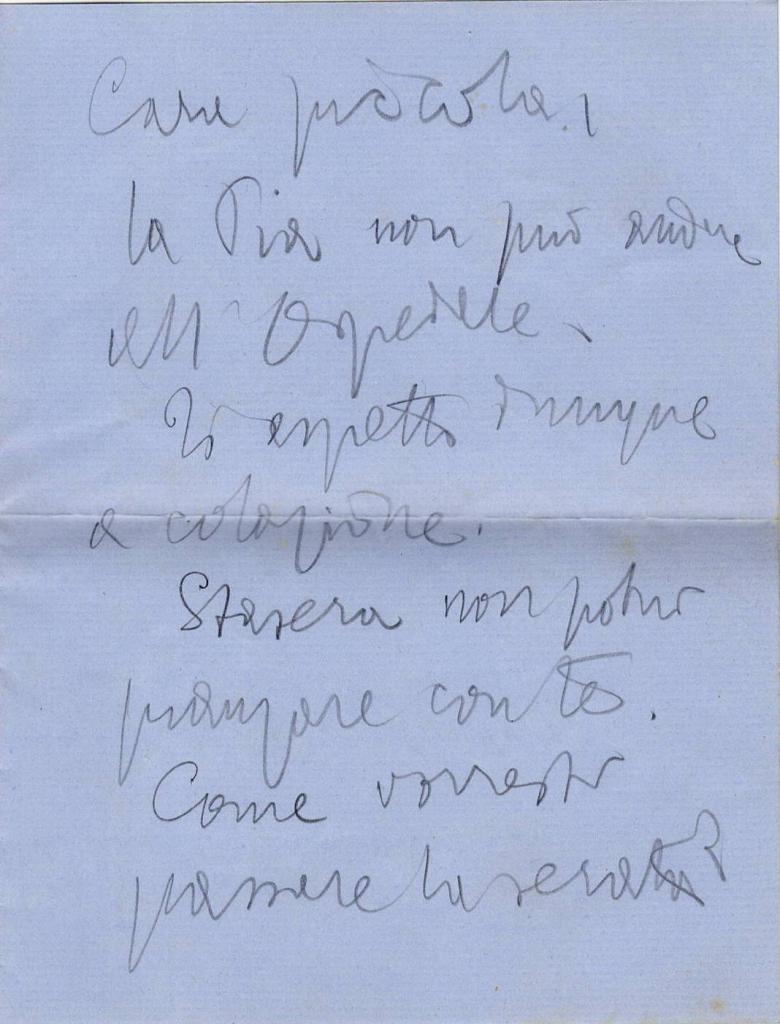 Cara piccola,
la Pia non può andare
all'Ospedale.
Ti aspetto dunque
a colazione.
Stasera non potrei
pranzare con te.
Come vorresti
passare la serata?